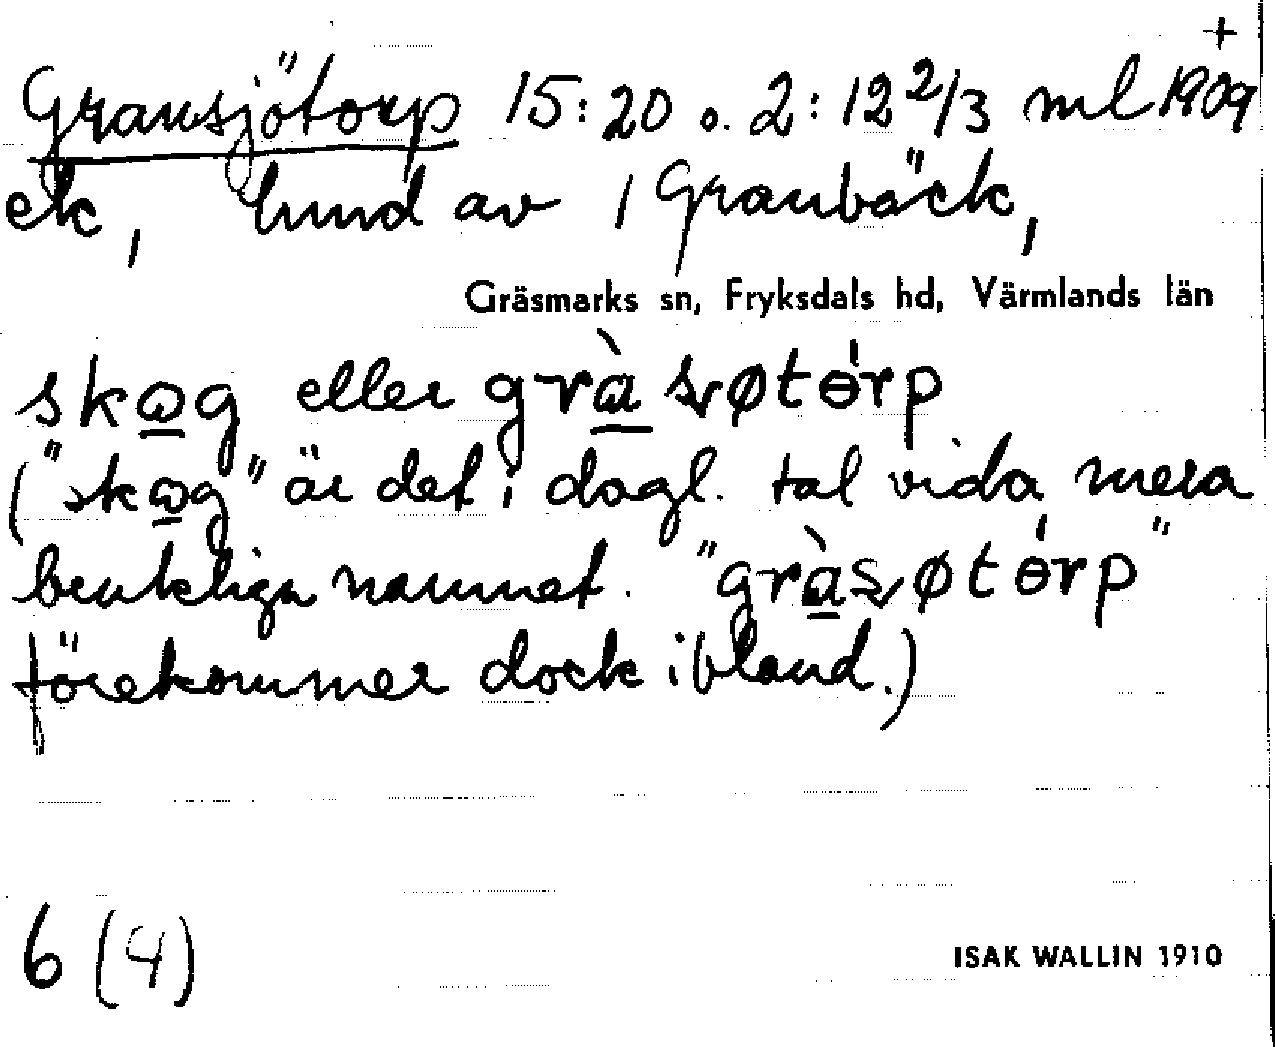 +
Gransjötorp 15:20 o. 2:12 2/3 ml 1909
ek, hund av 1 Granbäck,
Gräsmarks sn, Fryksdals hd, Värmlands län
skωg eller gràsøtɵ́rp
("skωg" är det i dagl. tal vida mera
brukliga namnet. "gràsøtɵ́rp"
förekommer dock ibland.)
6 (4)
ISAK WALLIN 1910